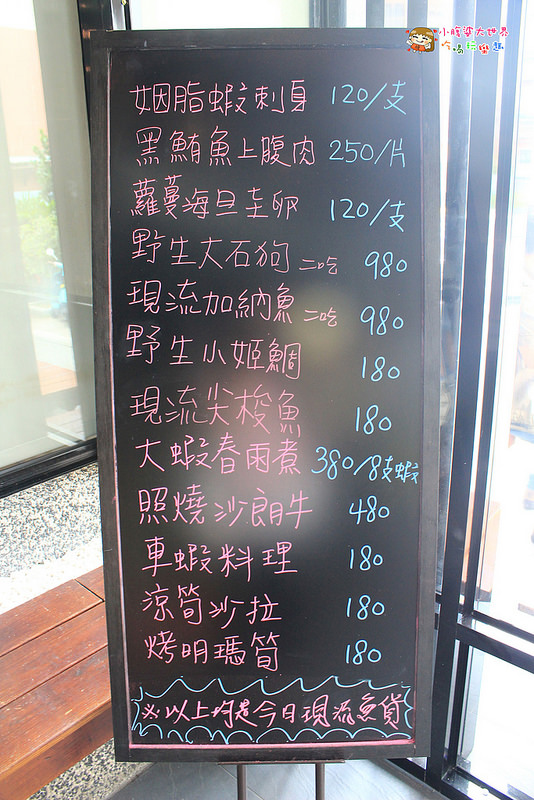 小腹婆大世界
吃喝玩樂趣
姻脂蝦刺身 120/支
黑鮪魚上腹肉 250/片
蘿蔓海旦圭卵 120/支
野生大石狗 二吃 980
現流加納魚 二吃 980
野生小姬鯛 180
現流尖梭魚 180
大蝦春雨煮 380/8支蝦
照燒沙朗牛 480
車蝦料理 180
涼筍沙拉 180
烤明瑪筍 180
※以上均是今日現流魚貨